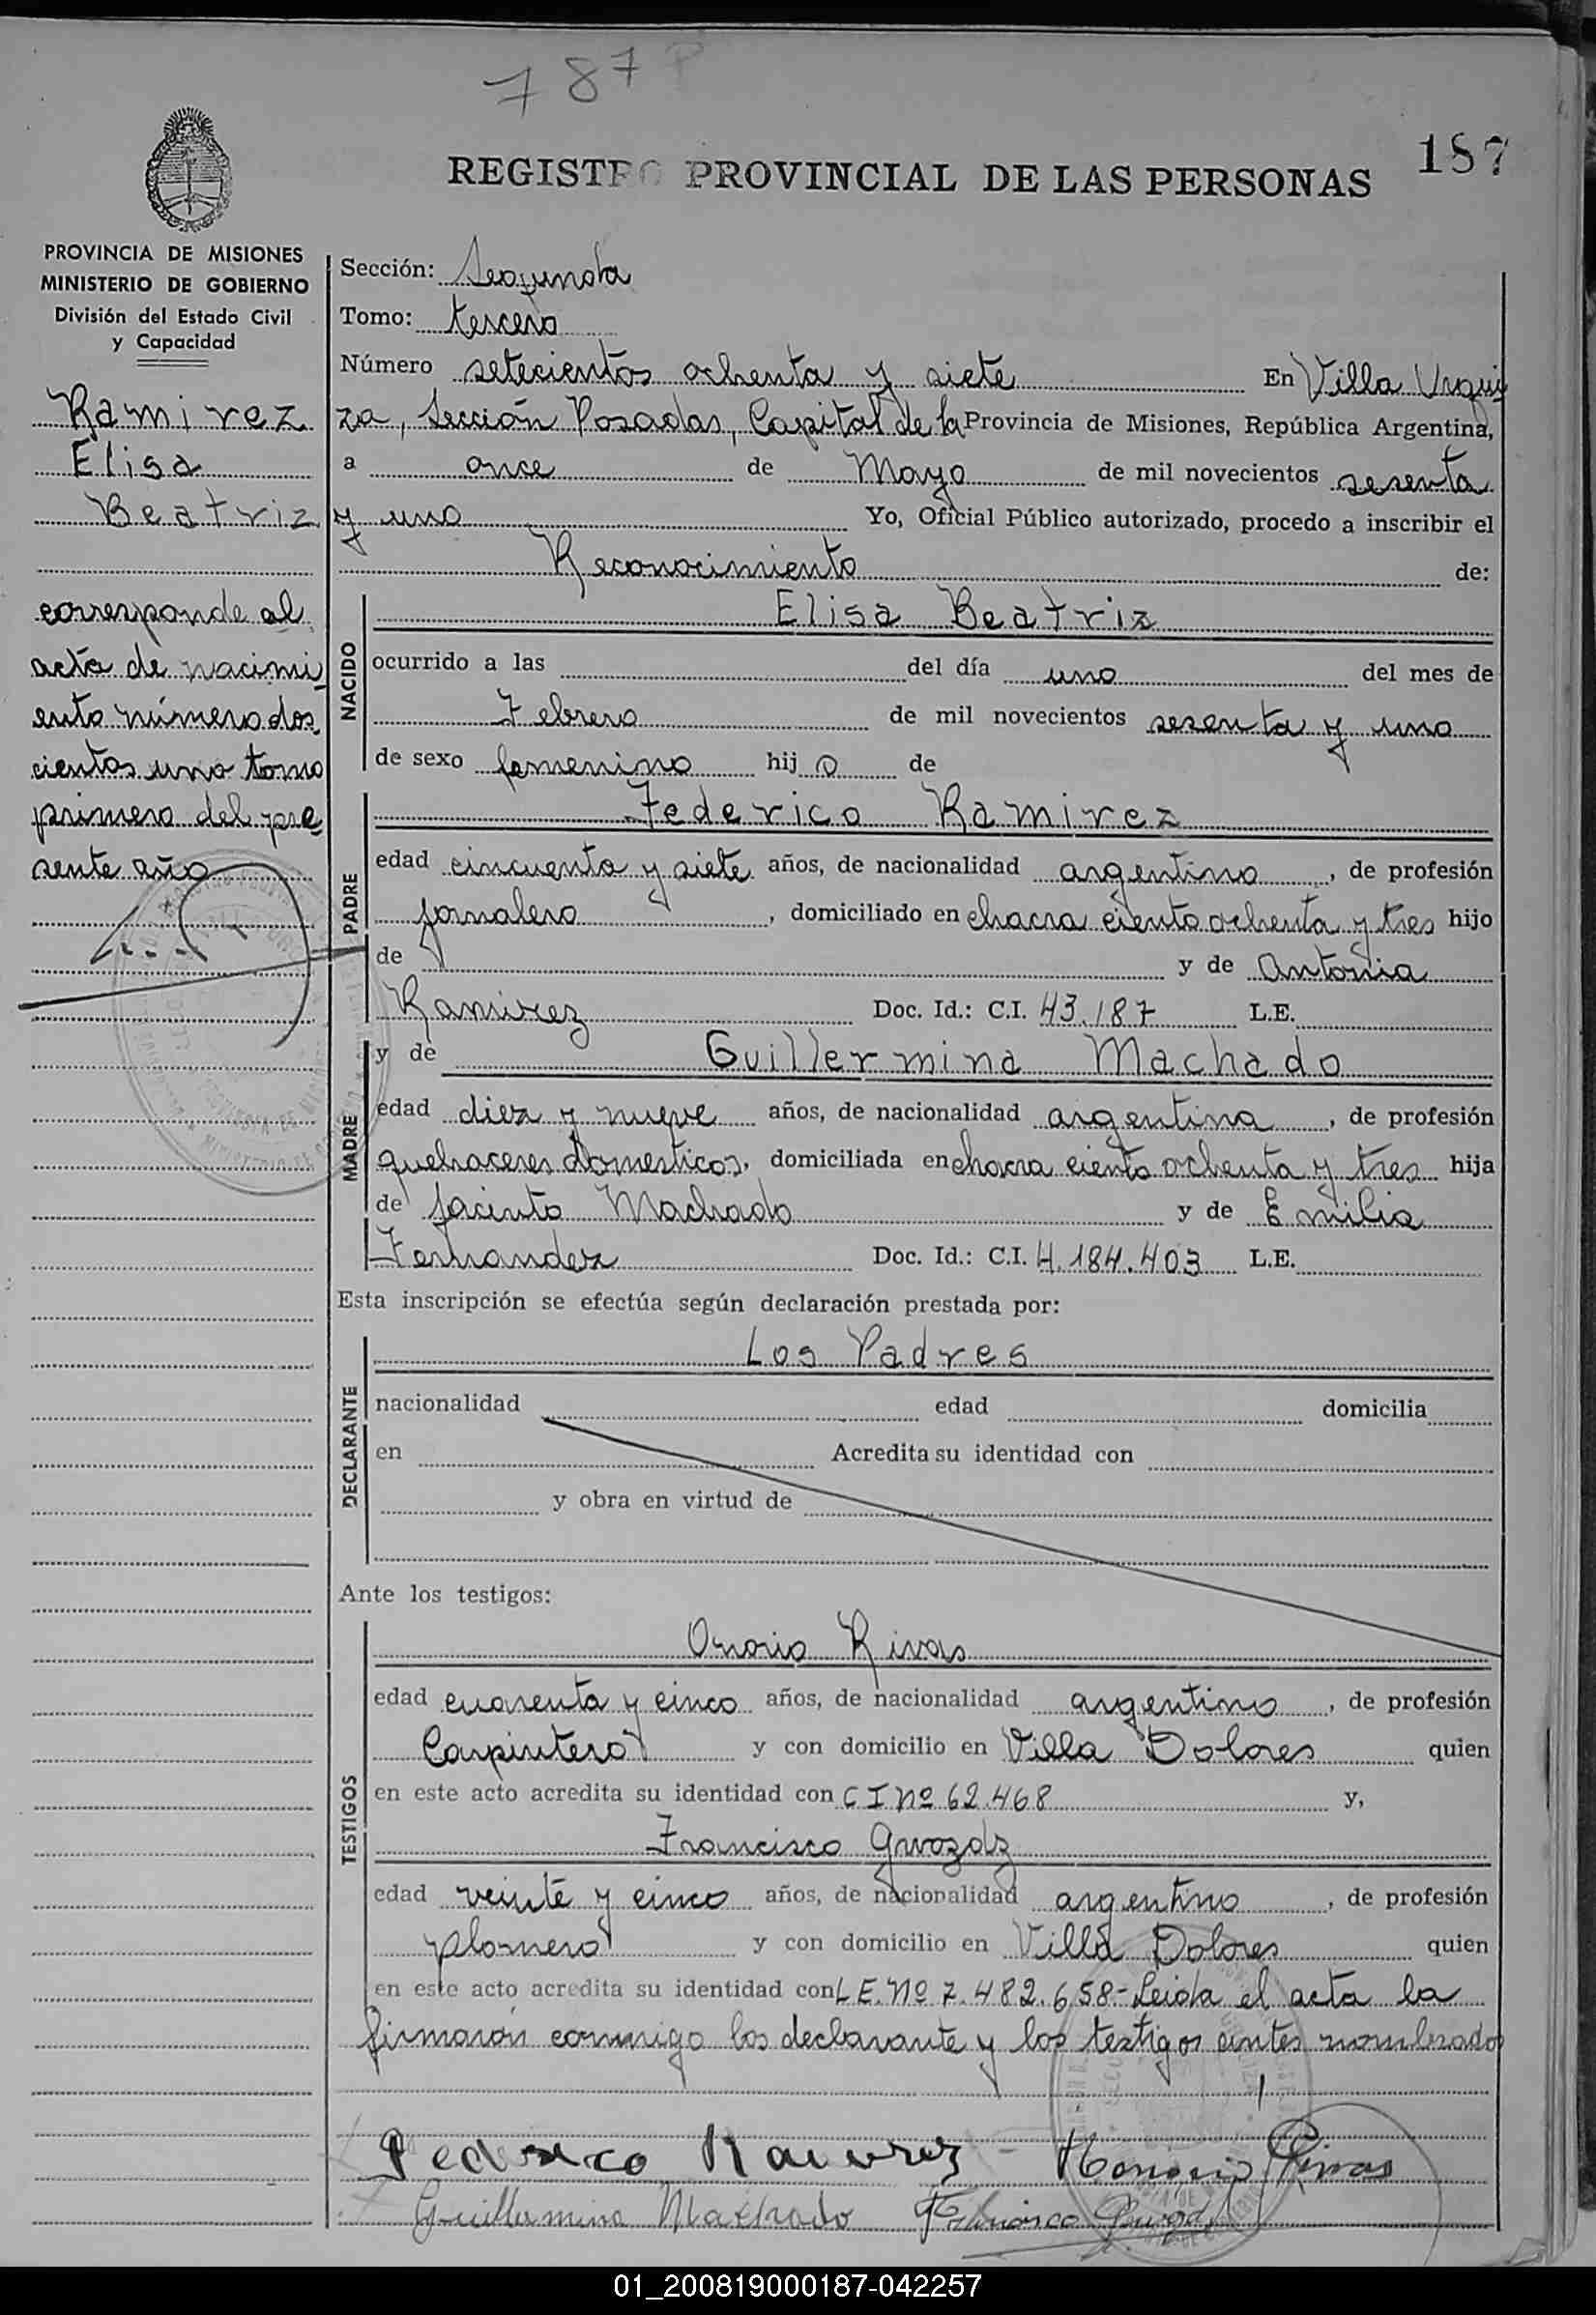 787
187
REGISTRO PROVINCIAL DE LAS PERSONAS
PROVINCIA DE MISIONES
MINISTERIO DE GOBIERNO
División del Estado Civil
y Capacidad
Ramirez
Elisa
Beatriz
corresponde al
acta de nacimi
ento número dos
cientos uno tomo
primero del pre
sente año
Sección: Segunda
Tomo: tercero
Número setecientos ochenta y siete En Villa Urqui
za, Sección Posadas, Capital de la Provincia de Misiones, República Argentina,
a once de Mayo de mil novecientos sesenta
y uno Yo, Oficial Público autorizado, procedo a inscribir el
Reconocimiento de:
NACIDO
Elisa Beatriz
ocurrido a las del día uno del mes de
Febrero de mil novecientos sesenta y uno
de sexo femenino hijo de
PADRE
Federico Ramirez
edad cincuenta y siete años, de nacionalidad argentino, de profesión
jornalero, domiciliado en chacra ciento ochenta y tres hijo
de y de Antonia
Ramirez Doc. Id.: C.I. 43.187 L.E.
MADRE
y de Guillermina Machado
edad diez y nueve años, de nacionalidad argentina, de profesión
quehaceres domesticos, domiciliada en chacra ciento ochenta y tres hija
de Jacinto Machado y de Emilia
Fernandez Doc. Id.: C.I. 4.184.403 L.E.
Esta inscripción se efectúa según declaración prestada por:
DECLARANTE
Los Padres
nacionalidad edad domicilia
en Acredita su identidad con
y obra en virtud de
Ante los testigos:
TESTIGOS
Onorio Rivas
edad cuarenta y cinco años, de nacionalidad argentino, de profesión
Carpintero y con domicilio en Villa Dolores quien
en este acto acredita su identidad con C I Nº 62.468 y,
Francisco Gwozdz
edad veinte y cinco años, de nacionalidad argentino, de profesión
plomero y con domicilio en Villa Dolores quien
en este acto acredita su identidad con L E. Nº 7.482.658.- Leida el acta la
firmaron conmigo los declarante y los testigos antes nombrados
Federico Ramirez - Honorio Rivas
Guillermina Machado Francisco
01_200819000187-042257